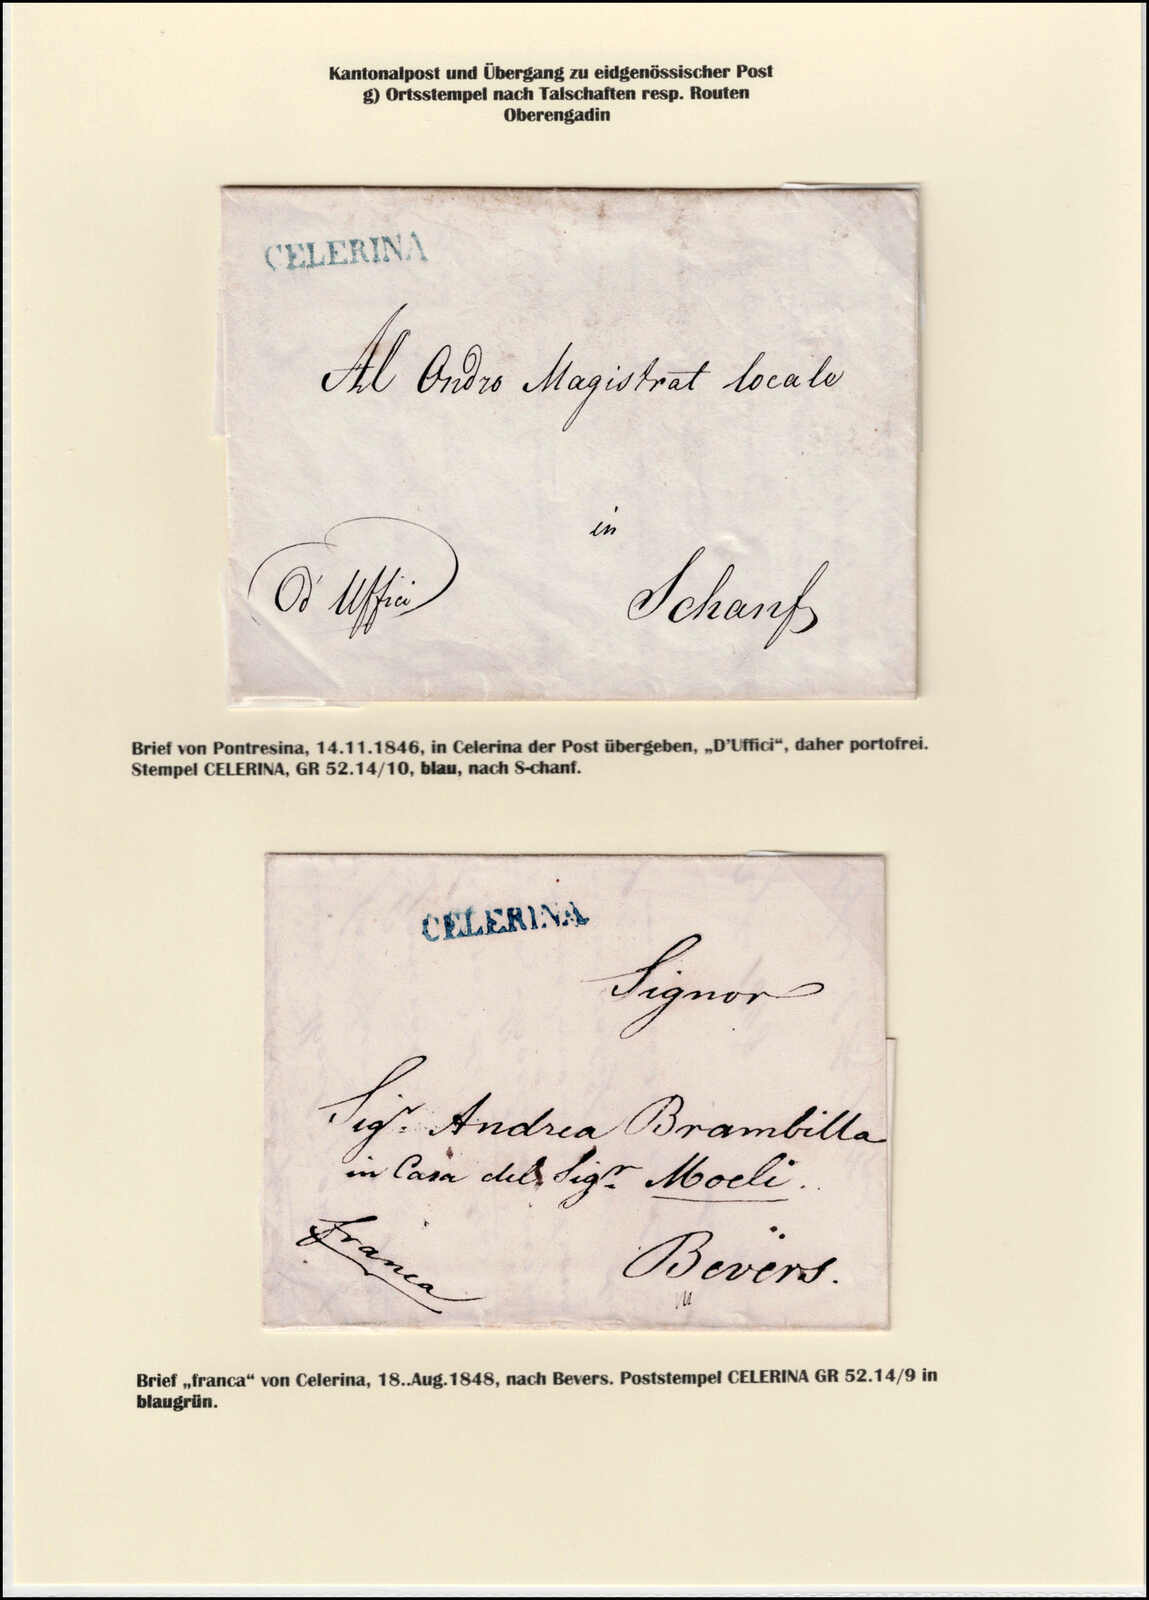 Kantonalpost und Übergang zu eidgenössischer Post
g) Ortsstempel nach Talschaften resp. Routen
Oberengadin
CELERINA
Al Ondro Magistrat locale
in
D'Uffici
Schanf
Brief von Pontresina, 14.11.1846, in Celerina der Post übergeben, „D'Uffici“, daher portofrei.
Stempel CELERINA, GR 52.14/10, blau, nach S-chanf.
CELERINA
Signor
Sigr. Andrea Brambilla
in Casa del Sigr. Moeli.
Franca
Bevers.
Brief „franca“ von Celerina, 18..Aug.1848, nach Bevers. Poststempel CELERINA GR 52.14/9 in
blaugrün.